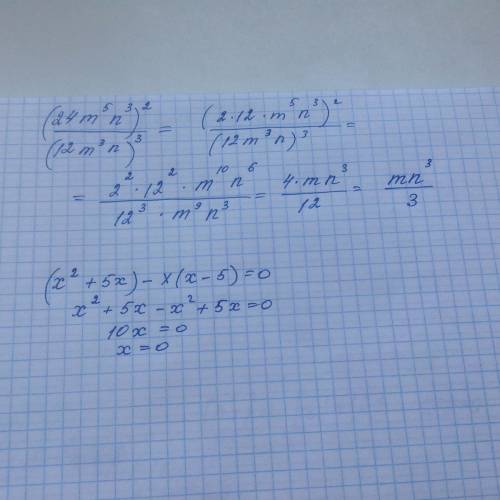 (24m⁵n³)²/(12m³n)³ = (2·12·m⁵n³)²/(12m³n)³ =
= 2²·12²·m¹⁰n⁶/12³·m⁹n³ = 4·mn³/12 = mn³/3
(x² + 5x) – x(x – 5) = 0
x² + 5x – x² + 5x = 0
10x = 0
x = 0